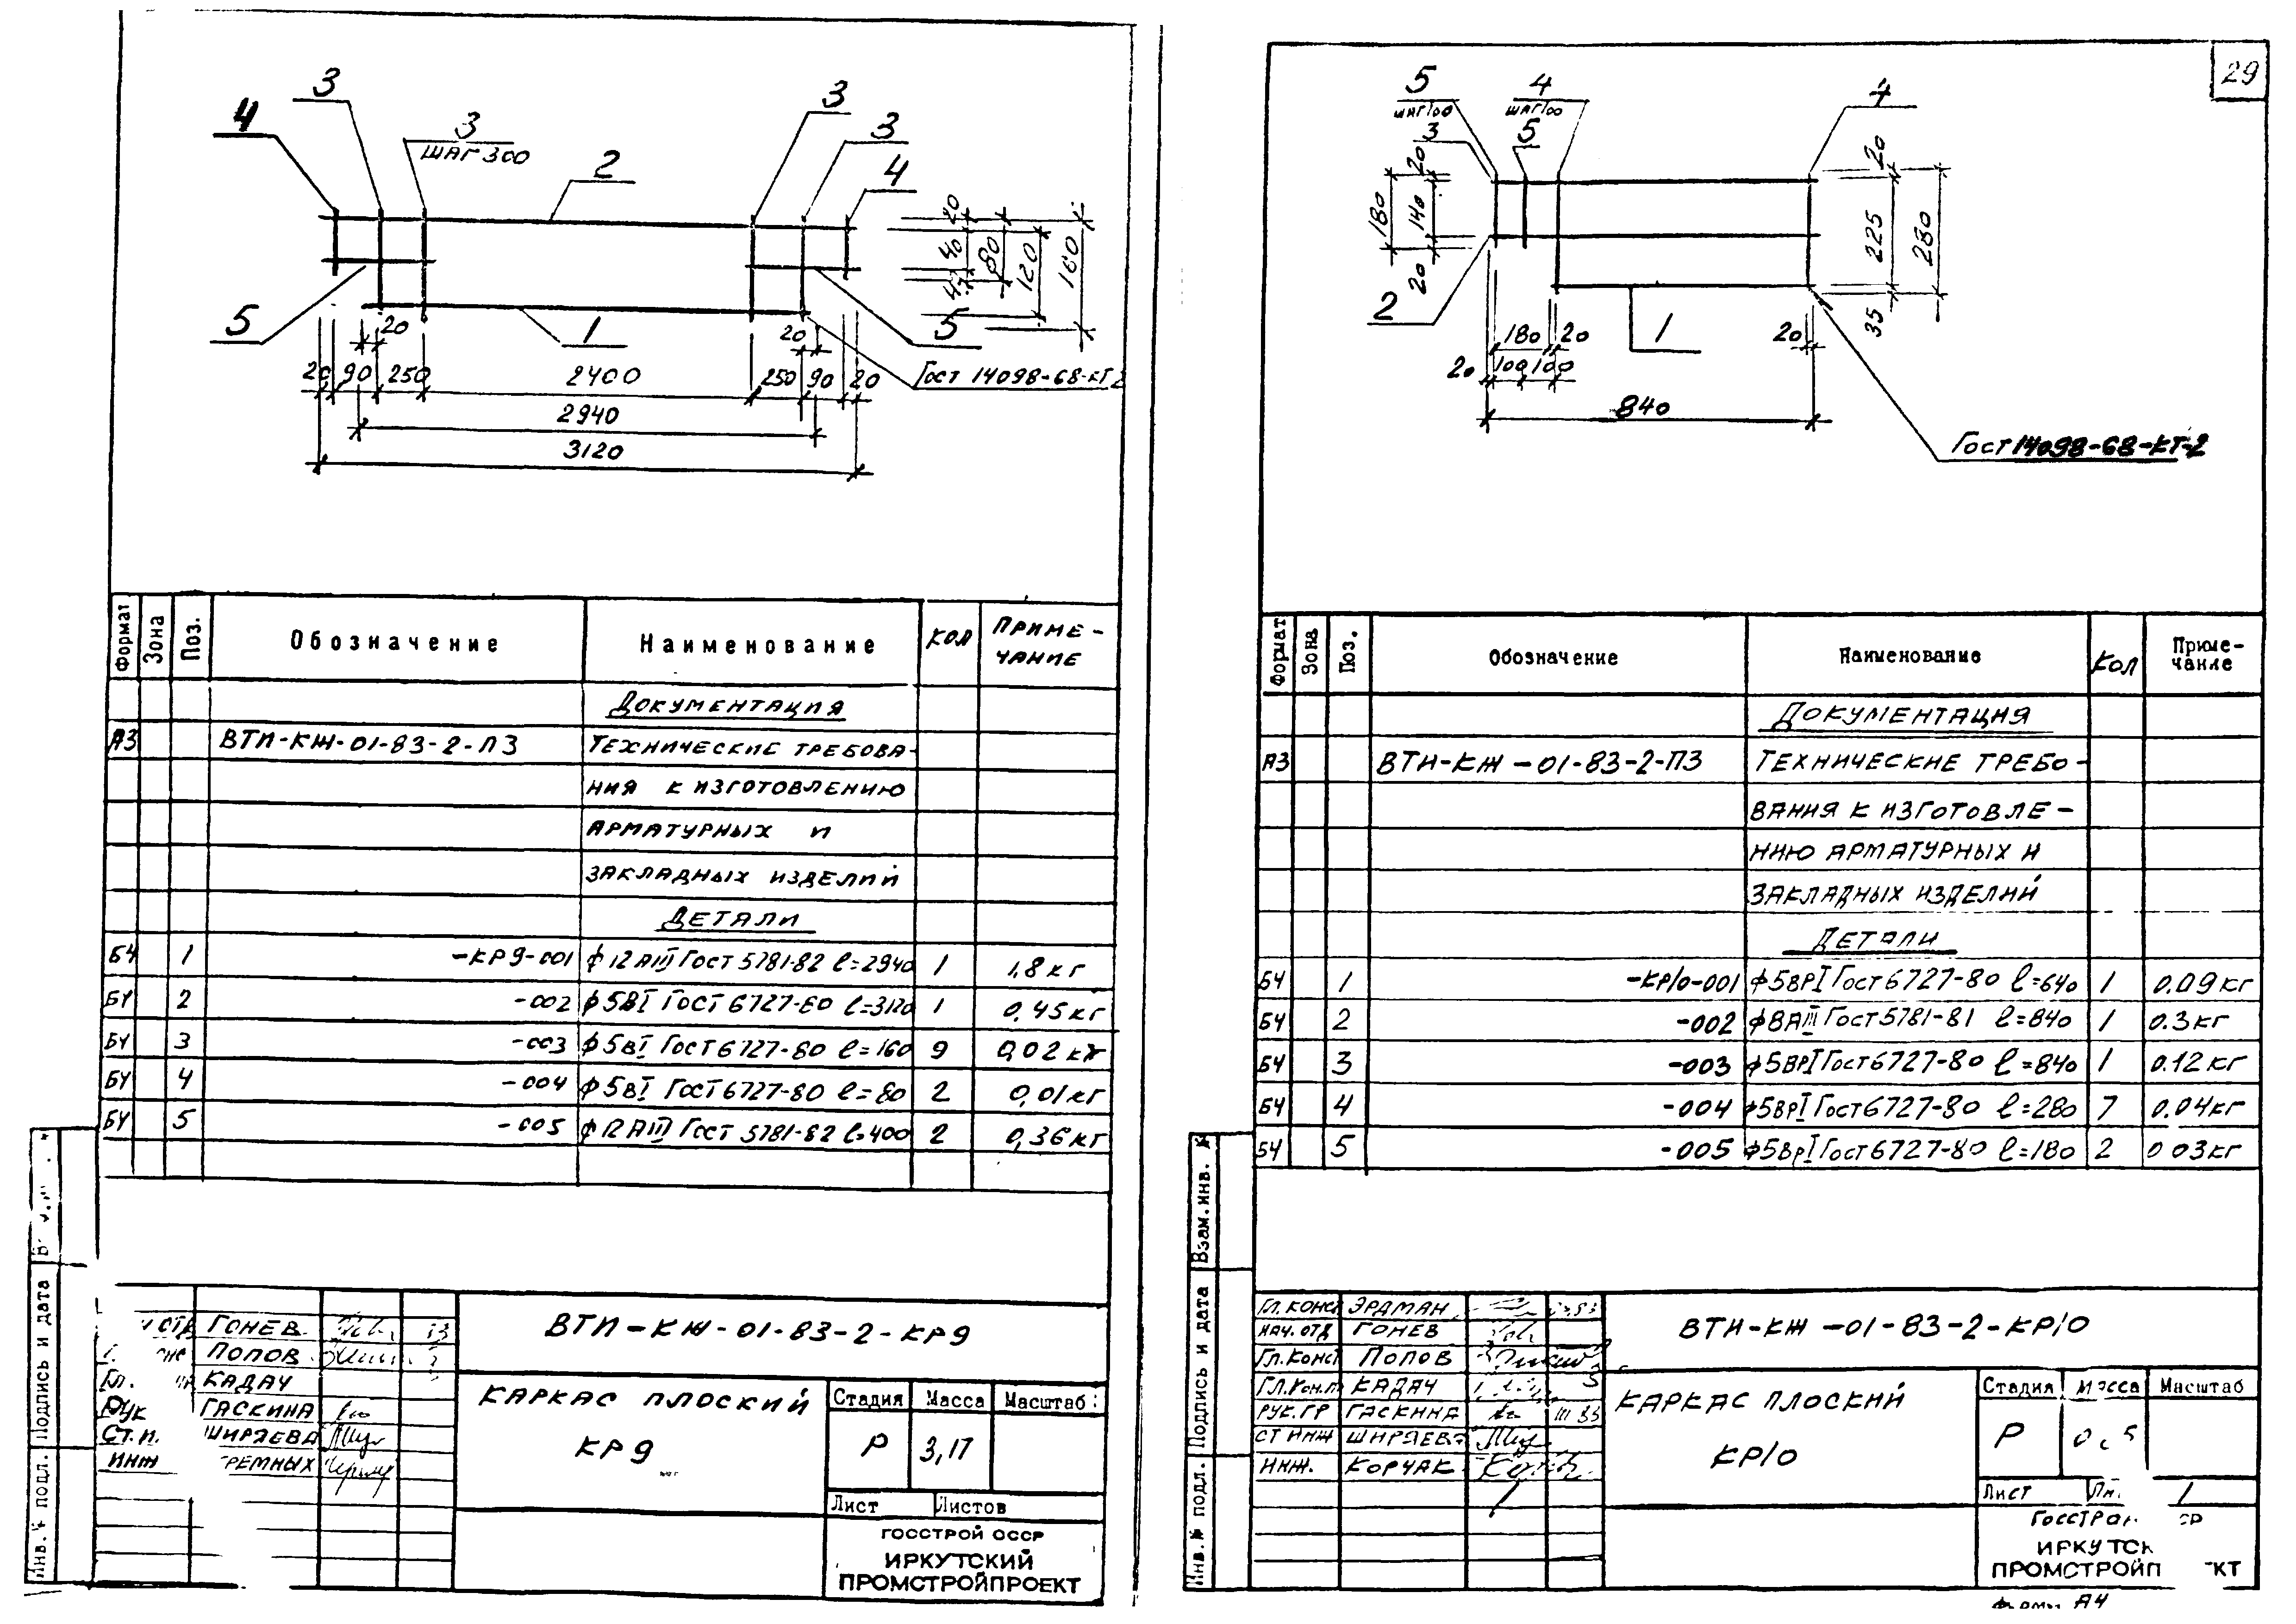 3
4
3
ШАГ 300
2
3
3
4
5
1
5
20
40
80
120
160
20
20
20 90 250 2400 250 90 20
ГОСТ 14098-68-КТ2
2940
3120
Формат Зона Поз. Обозначение Наименование КОЛ ПРИМЕ-
ЧАНИЕ
ДОКУМЕНТАЦИЯ
А3 ВТИ-КЖ-01-83-2-ПЗ ТЕХНИЧЕСКИЕ ТРЕБОВА-
НИЯ К ИЗГОТОВЛЕНИЮ
АРМАТУРНЫХ И
ЗАКЛАДНЫХ ИЗДЕЛИЙ
ДЕТАЛИ
БЧ 1 -КР9-001 ϕ12АIII ГОСТ 5781-82 ℓ=2940 1 1,8кг
БЧ 2 -002 ϕ5ВI ГОСТ 6727-80 ℓ=3120 1 0,45кг
БЧ 3 -003 ϕ5ВI ГОСТ 6727-80 ℓ=160 9 0,02кг
БЧ 4 -004 ϕ5ВI ГОСТ 6727-80 ℓ=80 2 0,01кг
БЧ 5 -005 ϕ12АIII ГОСТ 5781-82 ℓ=400 2 0,36кг
Инв.№ подл. Подпись и дата
ГОНЕВ
ПОПОВ
Гл. КАДАЧ
РУК ГАСКИНА
СТ.И. ШИРЯЕВА
ИНЖ РЕМНЫХ
ВТИ-КЖ-01-83-2-КР9
КАРКАС ПЛОСКИЙ
КР9
Стадия Масса Масштаб
Р 3,17
Лист Листов
ГОССТРОЙ СССР
ИРКУТСКИЙ
ПРОМСТРОЙПРОЕКТ
29
5
ШАГ100
3
4
ШАГ100
5
4
180 20 140 20
20 225 35 280
2
1
180 20 20
20 100 100
840
ГОСТ 14098-68-КТ-2
Формат Зона Поз. Обозначение Наименование КОЛ Приме-
чание
ДОКУМЕНТАЦИЯ
А3 ВТИ-КЖ-01-83-2-ПЗ ТЕХНИЧЕСКИЕ ТРЕБО-
ВАНИЯ К ИЗГОТОВЛЕ-
НИЮ АРМАТУРНЫХ И
ЗАКЛАДНЫХ ИЗДЕЛИЙ
ДЕТАЛИ
БЧ 1 -КР10-001 ϕ5ВрI ГОСТ 6727-80 ℓ=640 1 0.09кг
БЧ 2 -002 ϕ8АIII ГОСТ 5781-81 ℓ=840 1 0.3кг
БЧ 3 -003 ϕ5ВрI ГОСТ 6727-80 ℓ=840 1 0.12кг
БЧ 4 -004 ϕ5ВрI ГОСТ 6727-80 ℓ=280 7 0.04кг
БЧ 5 -005 ϕ5ВрI ГОСТ 6727-80 ℓ=180 2 0 03кг
Инв.№ подл. Подпись и дата Взам.инв. №
Гл.КОНСТ ЭРДМАН
НАЧ.ОТД ГОНЕВ
Гл.Конст ПОПОВ
Гл.Кон.т КАДАЧ
РУК.ГР ГАСКИНА III 83
СТ ИНЖ ШИРЯЕВА
ИНЖ. КОРЧАК
ВТИ-КЖ-01-83-2-КР10
КАРКАС ПЛОСКИЙ
КР10
Стадия Масса Масштаб
Р
Лист 1
ИРКУТСК
ПРОМСТРОЙП КТ
А4